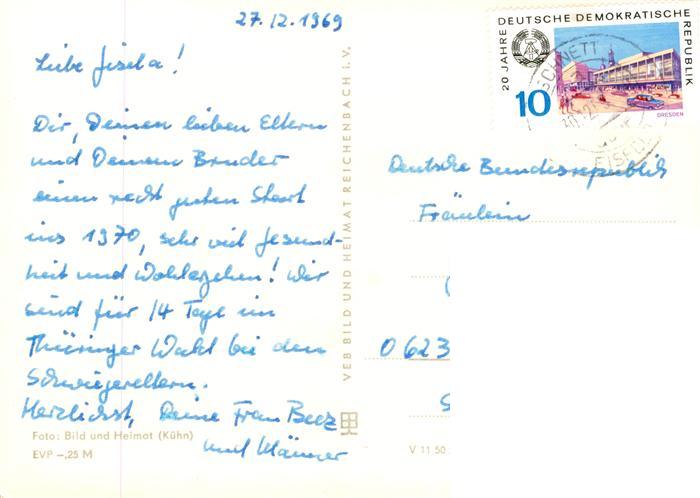 27.12.1969
Liebe Gisela!
Dir, Deinen lieben Eltern
und Deinem Bruder
einen recht guten Start
ins 1970, sehr viel Gesund-
heit und Wohlergehen! Wir
sind für 14 Tage im
Thüringer Wald bei den
Schwiegereltern.
Herzlichst, Deine Frau Beez
und Männer
Foto: Bild und Heimat (Kühn)
EVP -,25 M
VEB BILD UND HEIMAT REICHENBACH i. V.
20 JAHRE DEUTSCHE DEMOKRATISCHE REPUBLIK
10
DRESDEN
Deutsche Bundesrepublik
Fräulein
0623
V 11 50